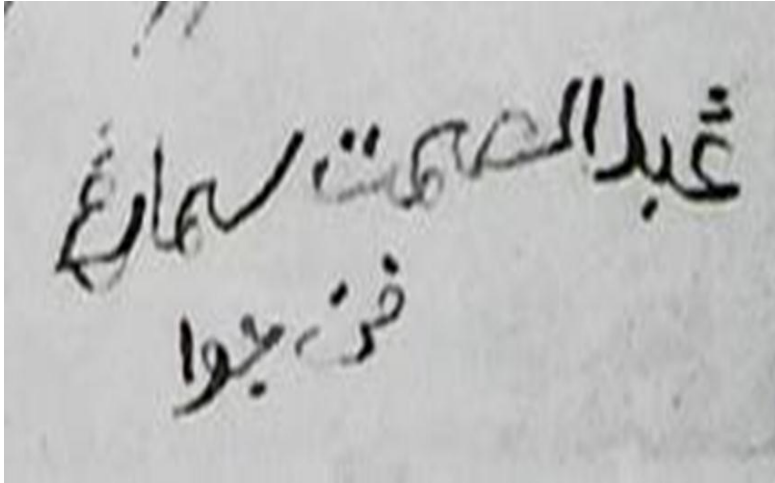 عبد الصمت سمارڠ
فن جوا